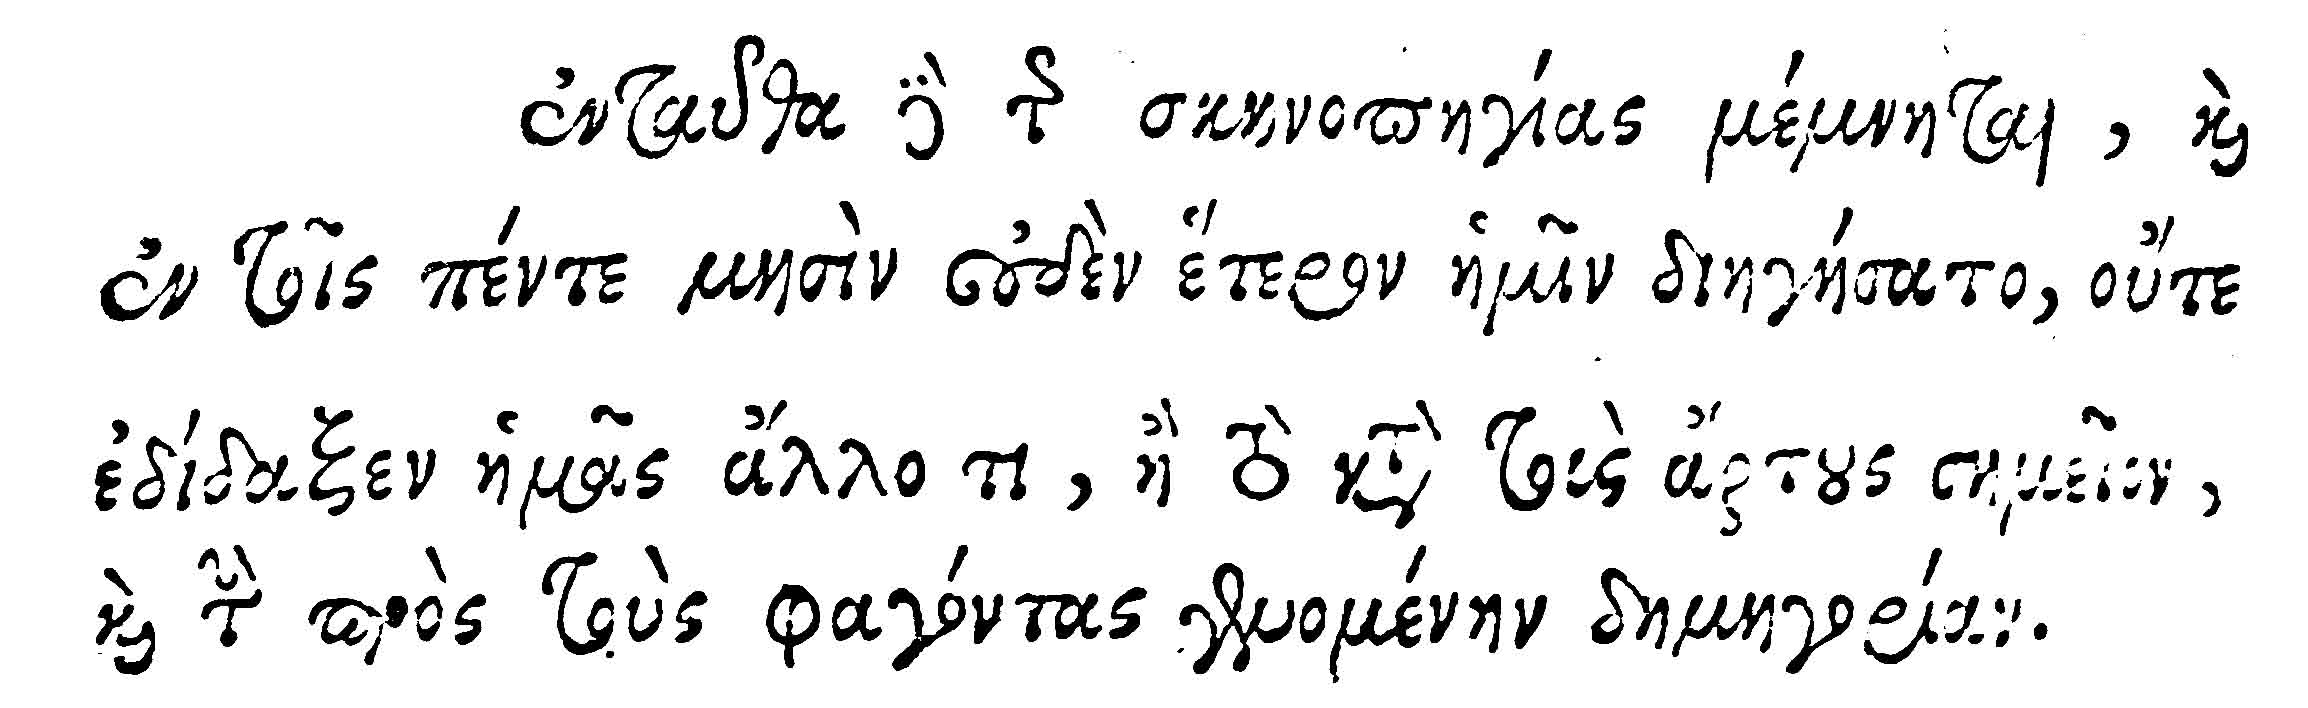 ἐνταῦθα δὲ τῆς σκηνοπηγίας μέμνηται, καὶ
ἐν τοῖς πέντε μησὶν οὐδὲν ἕτερον ἡμῖν διηγήσατο, οὔτε
ἐδίδαξεν ἡμᾶς ἄλλο τι, ἢ τὸ κατὰ τοὺς ἄρτους σημεῖον,
καὶ τὴν πρὸς τοὺς φαγόντας γενομένην δημηγορίαν.